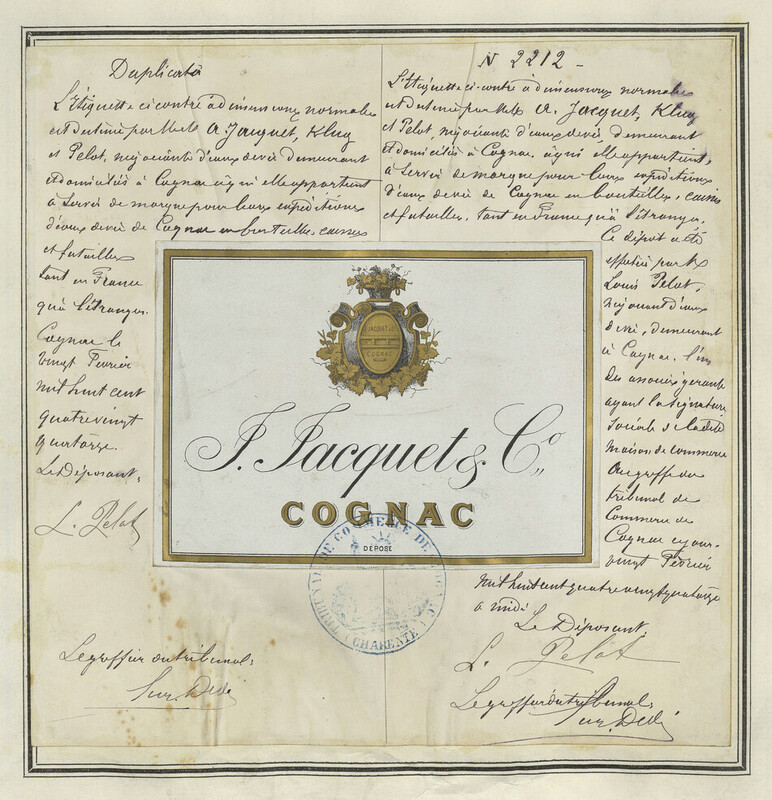 Duplicata
L'étiquette ci contre à dimensions normales
est destinée par MM. A. Jacquet, Klug
et Pelot, négociants d'eaux de vie demeurant
et domiciliés à Cognac à qui elle appartient
à servir de marque pour leurs expéditions
d'eaux de vie de Cognac en bouteilles, caisses
et futailles
tant en France
qu'à l'étranger.
Cognac le
vingt Février
mil huit cent
quatre vingt
quatorze.
Le Déposant,
L. Pelot
Le greffier du tribunal,
N 2212 -
L'étiquette ci-contre à dimensions normales
est destinée par MM. A. Jacquet, Klug
et Pelot, négociants d'eaux de vie, demeurant
et domiciliés à Cognac, à qui elle appartient,
à servir de marque pour leurs expéditions
d'eaux de vie de Cognac en bouteilles, caisses
et futailles, tant en France qu'à l'étranger.
Ce dépôt a été
effectué par M.
Louis Pelot,
négociant d'eaux
de vie, demeurant
à Cognac, l'un
des associés gérants
ayant la signature
sociale de la dite
maison de commerce
Au greffe du
tribunal de
Commerce de
Cognac ce jour
vingt Février
mil huit cent quatre vingt quatorze
à midi
Le Déposant,
L. Pelot
Le greffier du tribunal,
JACQUET & Co
COGNAC
J. Jacquet & Co.,
COGNAC
DÉPOSÉ
TRIBUNAL DE COMMERCE DE COGNAC
(CHARENTE)